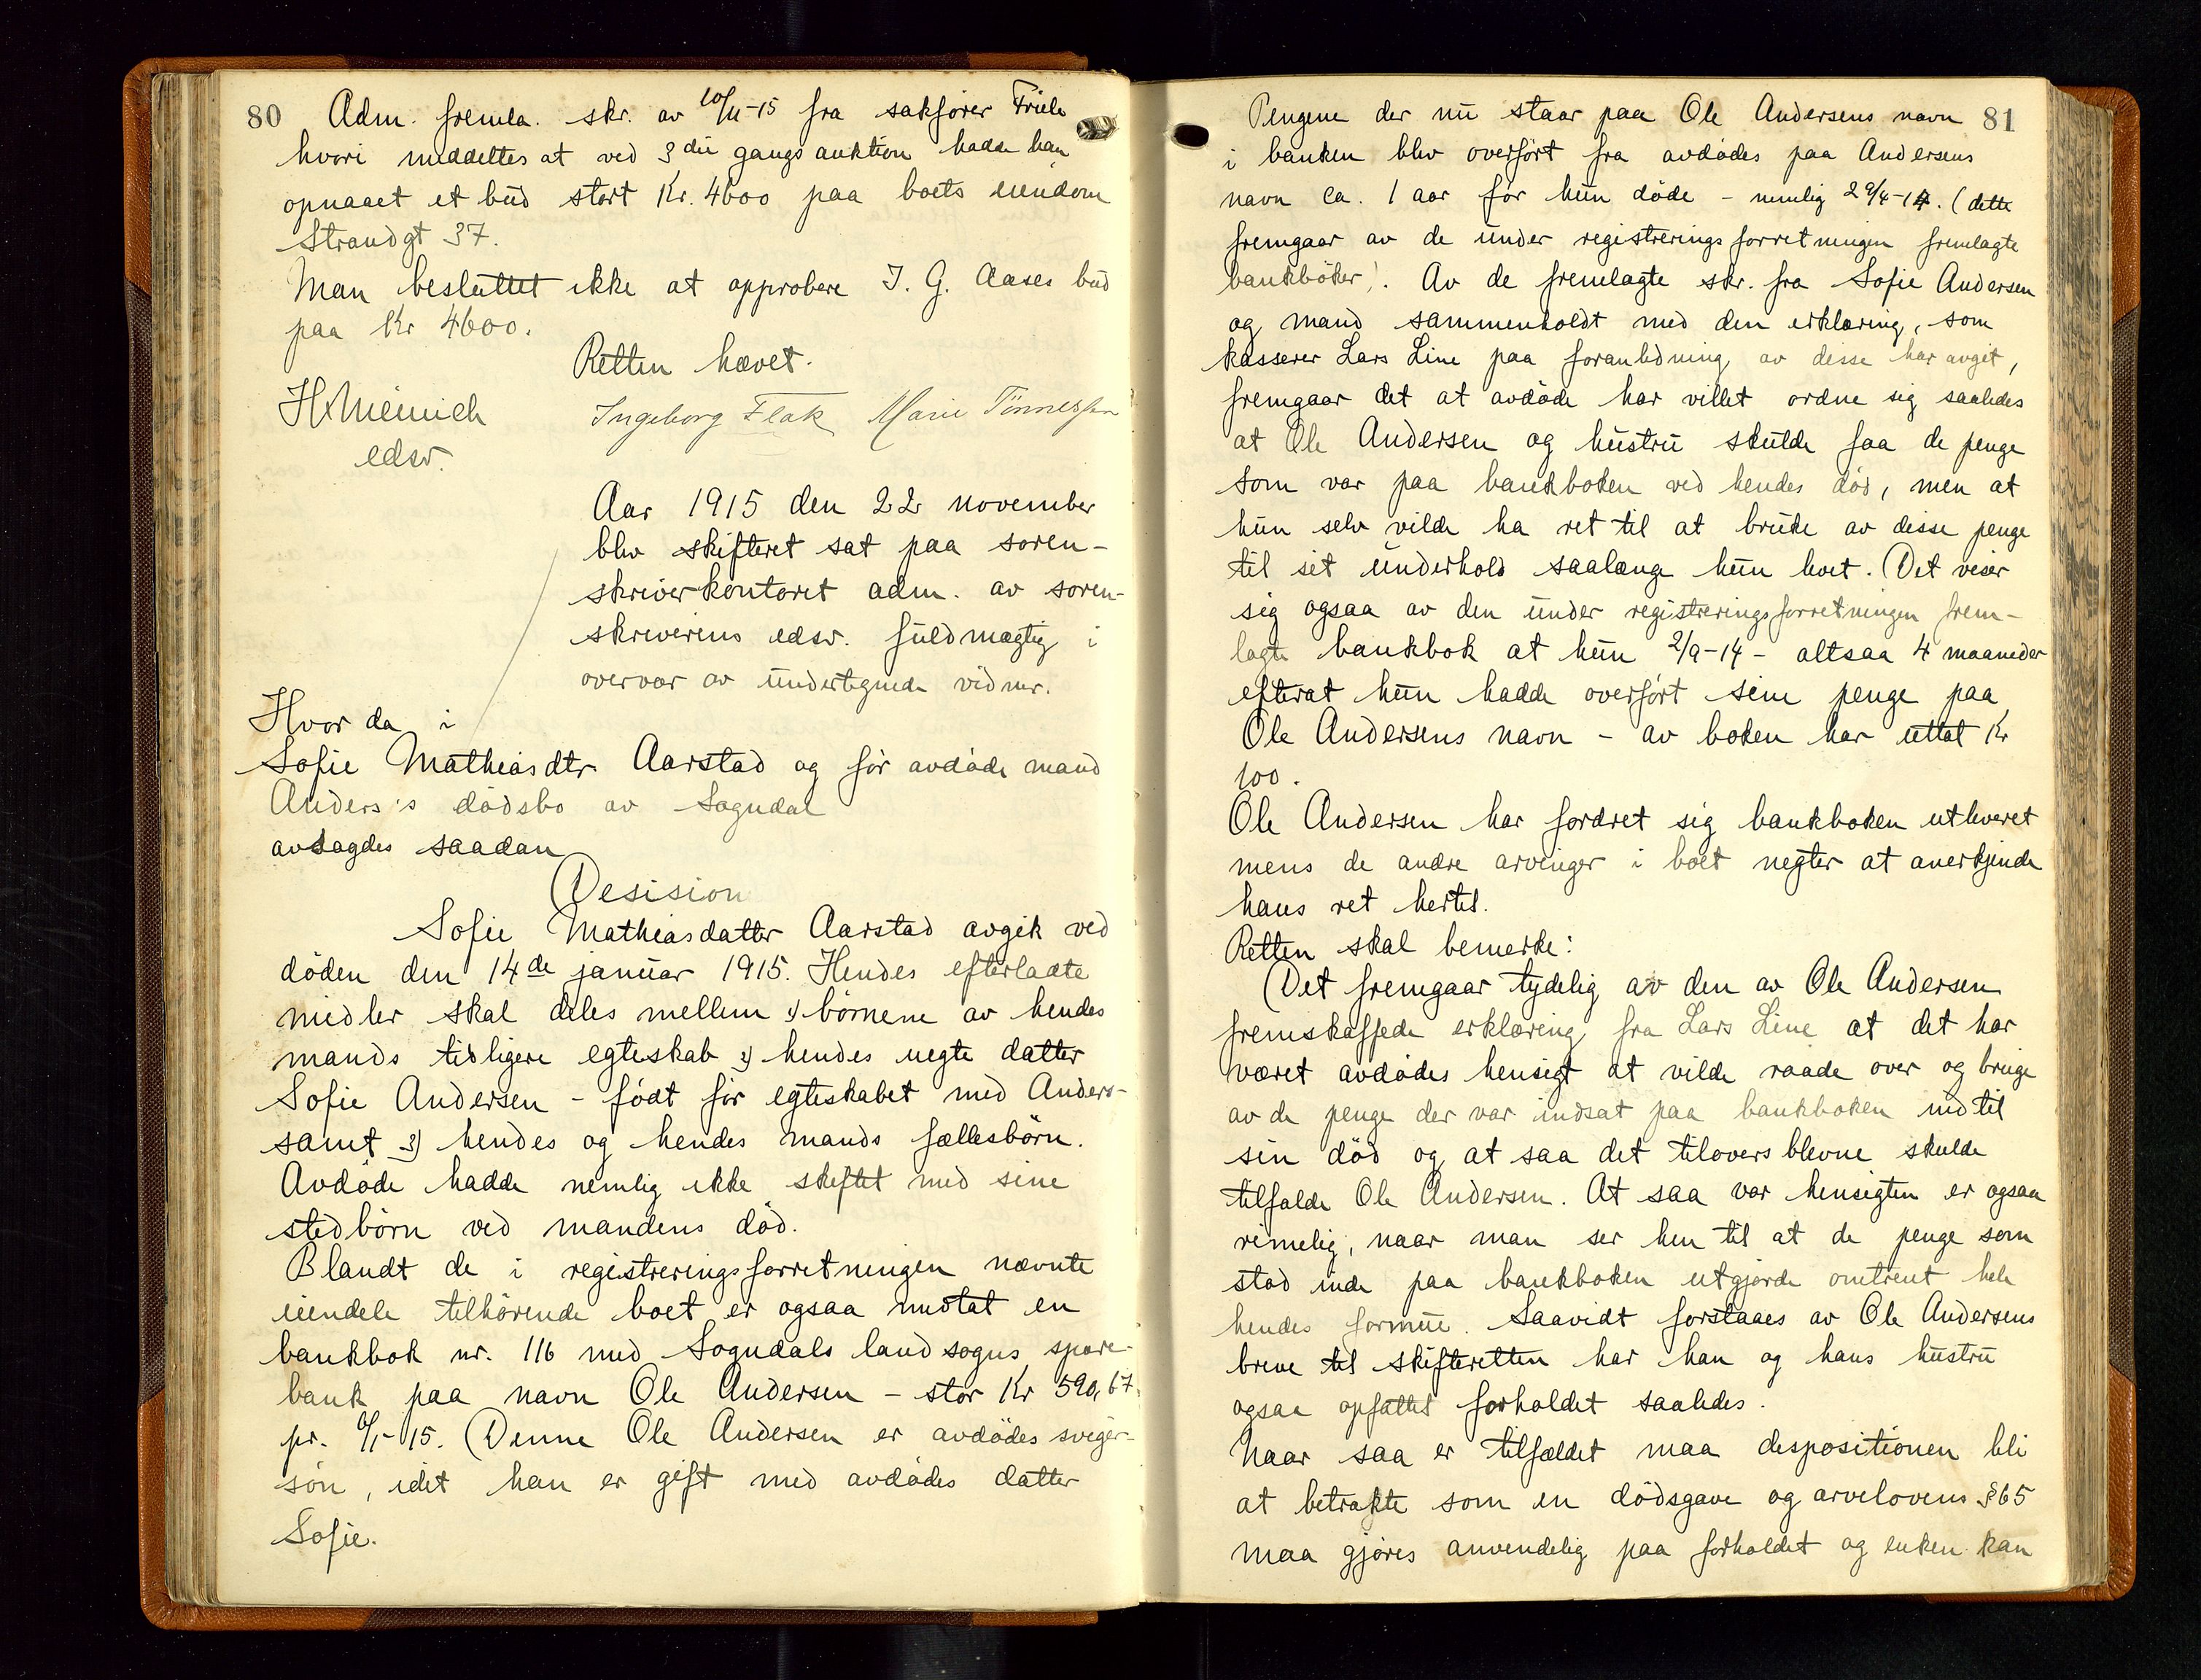 80 Adm. fremla. skr. av 10/11-15 fra sakfører Friele
hvori meddeltes at ved 3die gangs auktion hadde han
opnaaet et bud stort Kr. 4600 paa boets eiendom
Strandgt 37.
Man besluttet ikke at approbere J. G. Aases bud
paa Kr 4600.
Retten hævet.
Ingeborg Flak Marie Tönnessen
edsv.
Aar 1915 den 22 november
blev skifteret sat paa soren-
skriverkontoret adm. av soren-
skriverens edsv. fuldmægtig i
overvær av undertegnede vidner.
Hvor da i
Sofie Mathiasdtr Aarstad og før avdøde mand
Anders's dödsbo av Sogndal
avsagdes saadan
Desision
Sofie Mathiasdatter Aarstad avgik ved
döden den 14de januar 1915. Hendes efterladte
midler skal deles mellem 1) börnene av hendes
mands tidligere egteskab 2) hendes uegte datter
Sofie Andersen - född før egteskabet med Anders-
samt 3) hendes og hendes mands fællesbörn.
Avdøde hadde nemlig ikke skiftet med sine
stedbörn ved mandens död.
Blandt de i registreringsforretningen nævnte
eiendele tilhörende boet er ogsaa medtat en
bankbok nr. 116 med Sogndals landsogns spare-
bank paa navn Ole Andersen - stor Kr 590,67
pr. 9/1-15. Denne Ole Andersen er avdödes sviger-
sön, idet han er gift med avdödes datter
Sofie.
Pengene der nu staar paa Ole Andersens navn 81
i banken blev overfört fra avdödes paa Andersens
navn ca. 1 aar før hun döde - nemlig 29/4-14. (dette
fremgaar av de under registreringsforretningen fremlagte
bankböker). Av de fremlagte skr. fra Sofie Andersen
og mand sammenholdt med den erklæring, som
kasserer Lars Line paa foranledning av disse har avgit,
fremgaar det at avdöde har villet ordne sig saaledes
at Ole Andersen og hustru skulde faa de penge
som var paa bankboken ved hendes död, men at
hun selv vilde ha ret til at bruke av disse penge
til sit underhold saalænge hun levet. Det viser
sig ogsaa av den under registreringsforretningen frem-
lagte bankbok at hun 2/9-14 - altsaa 4 maaneder
efterat hun hadde overfört sine penge paa
Ole Andersens navn - av boken har uttat Kr
100.
Ole Andersen har fordret sig bankboken utleveret
mens de andre arvinger i boet negter at anerkjende
hans ret hertil.
Retten skal bemerke:
Det fremgaar tydelig av den av Ole Andersen
fremskaffede erklæring fra Lars Line at det har
været avdödes hensigt at vilde raade over og bruge
av de penge der var indsat paa bankboken indtil
sin död og at saa det tilovers blevne skulde
tilfalde Ole Andersen. At saa var hensigten er ogsaa
rimelig, naar man ser hen til at de penge som
stod inde paa bankboken utgjorde omtrent hele
hendes formue. Saavidt forstaaes av Ole Andersens
breve til skifteretten har han og hans hustru
ogsaa opfattet forholdet saaledes.
Naar saa er tilfældet maa dispositionen bli
at betrakte som en dödsgave og arvelovens §65
maa gjöres anvendelig paa forholdet og enken kan